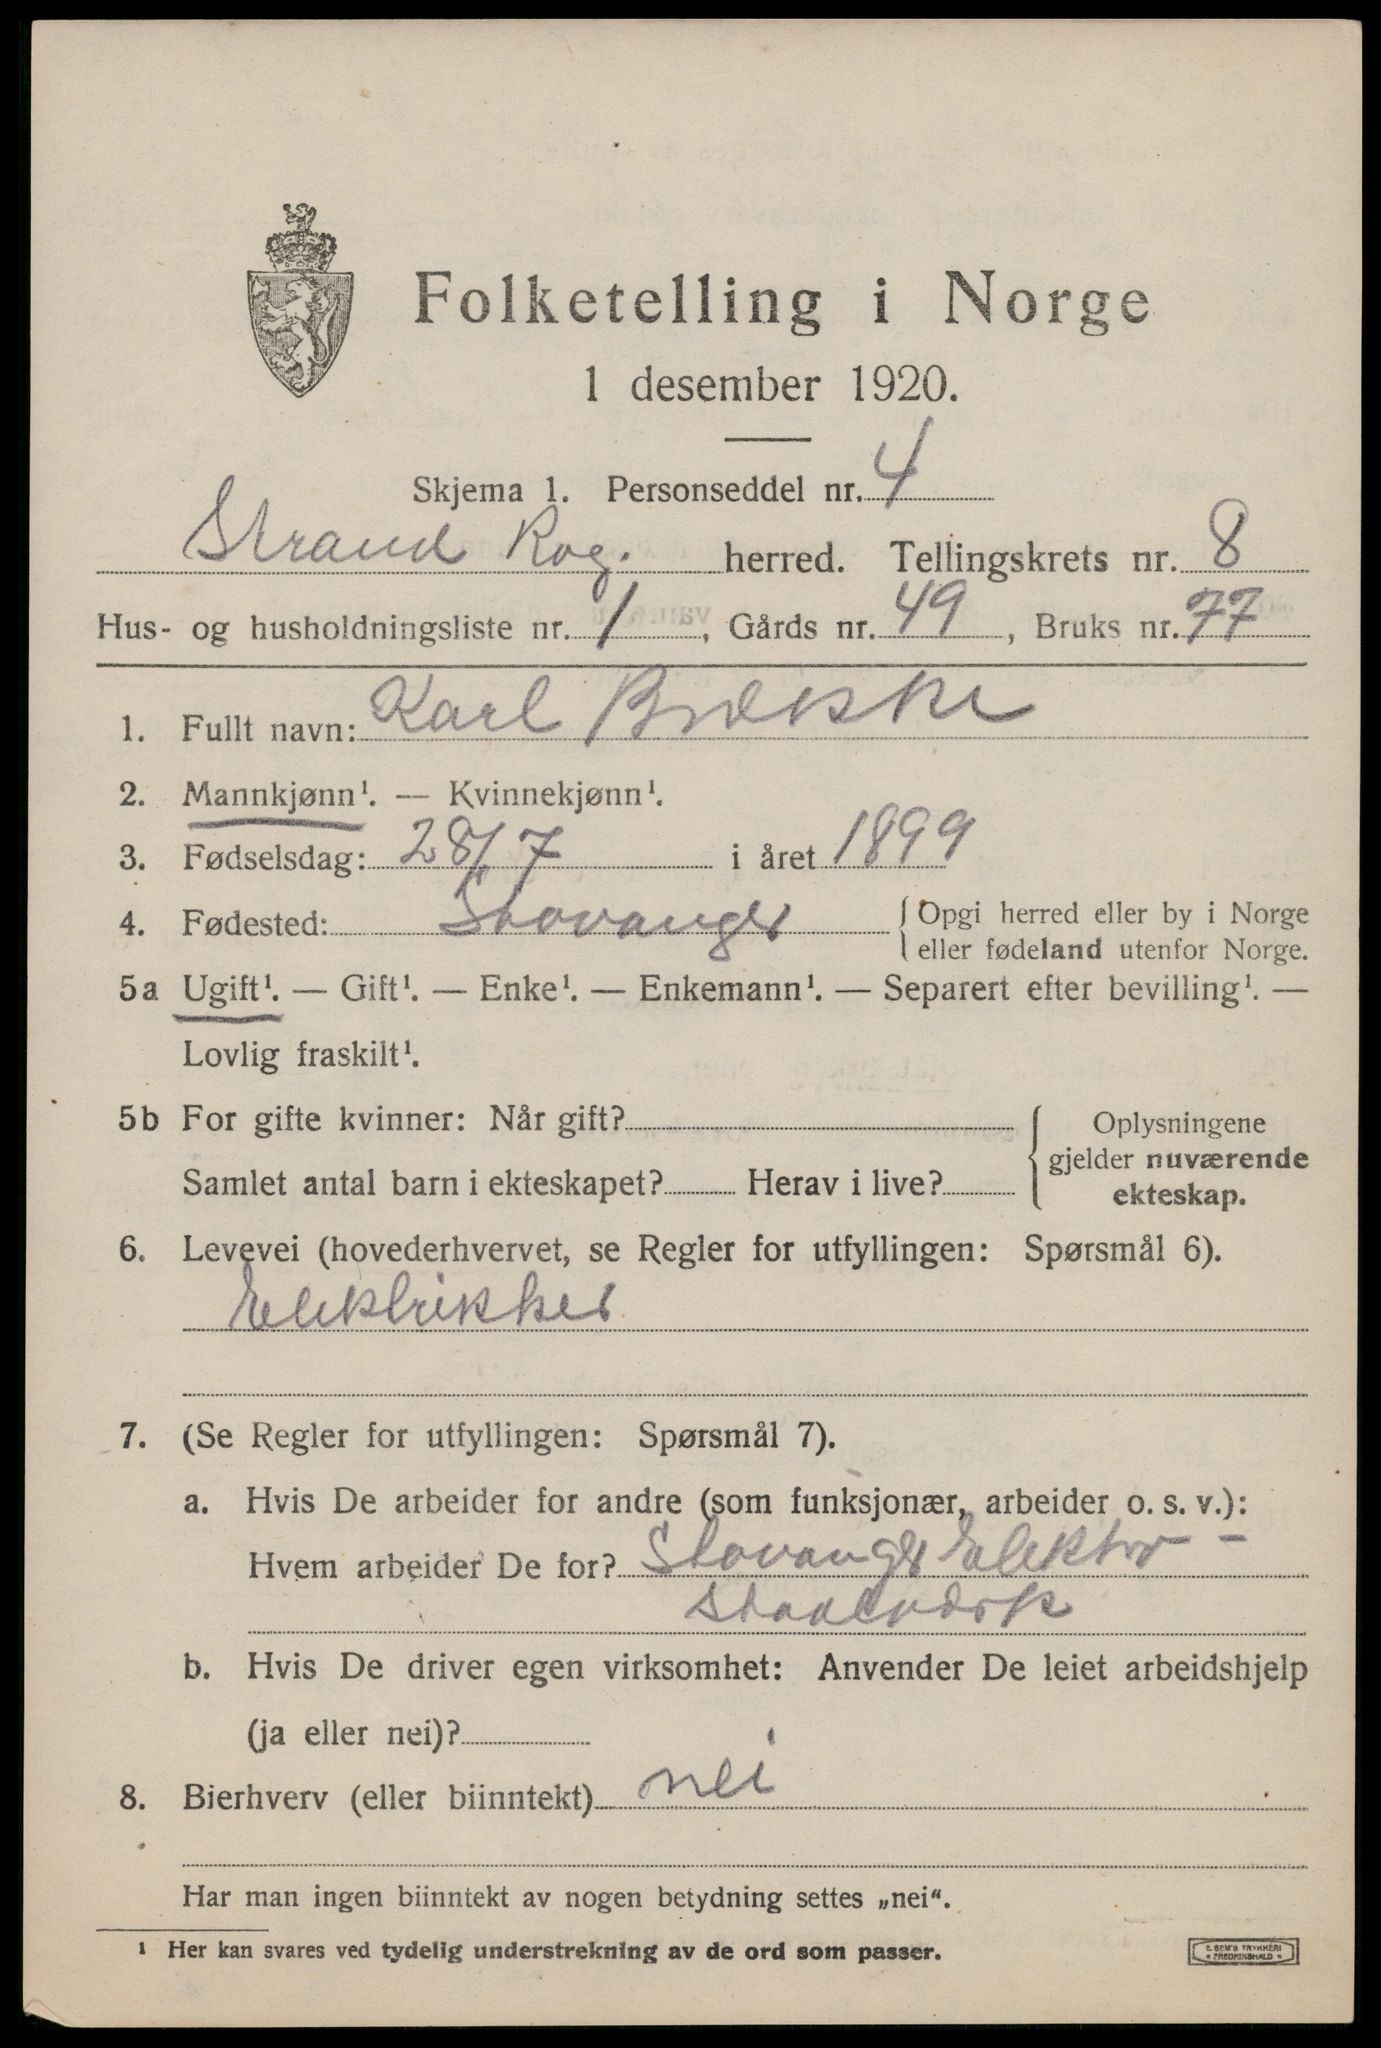 Folketelling i Norge
1 desember 1920.
Skjema 1. Personseddel nr. 4
Strand Rog. herred. Tellingskrets nr. 8
Hus- og husholdningsliste nr. 1, Gårds nr. 49, Bruks nr. 77
1. Fullt navn: Karl Brække
2. Mannkjønn¹. — Kvinnekjønn¹.
3. Fødselsdag: 28/7 i året 1899
4. Fødested: Stavanger { Opgi herred eller by i Norge
eller fødeland utenfor Norge.
5a Ugift¹. — Gift¹. — Enke¹. — Enkemann¹. — Separert efter bevilling¹. —
Lovlig fraskilt¹.
5b For gifte kvinner: Når gift? { Oplysningene
gjelder nuværende
Samlet antal barn i ekteskapet? Herav i live? ekteskap.
6. Levevei (hovederhvervet, se Regler for utfyllingen: Spørsmål 6).
Elektrikker
7. (Se Regler for utfyllingen: Spørsmål 7).
a. Hvis De arbeider for andre (som funksjonær, arbeider o. s. v.):
Hvem arbeider De for? Stavanger Elektro-
Staalværk
b. Hvis De driver egen virksomhet: Anvender De leiet arbeidshjelp
(ja eller nei)?
8. Bierhverv (eller biinntekt) nei
Har man ingen biinntekt av nogen betydning settes „nei“.
¹ Her kan svares ved tydelig understrekning av de ord som passer.
E. SEM'S TRYKKERI
• FREDRIKSHALD •